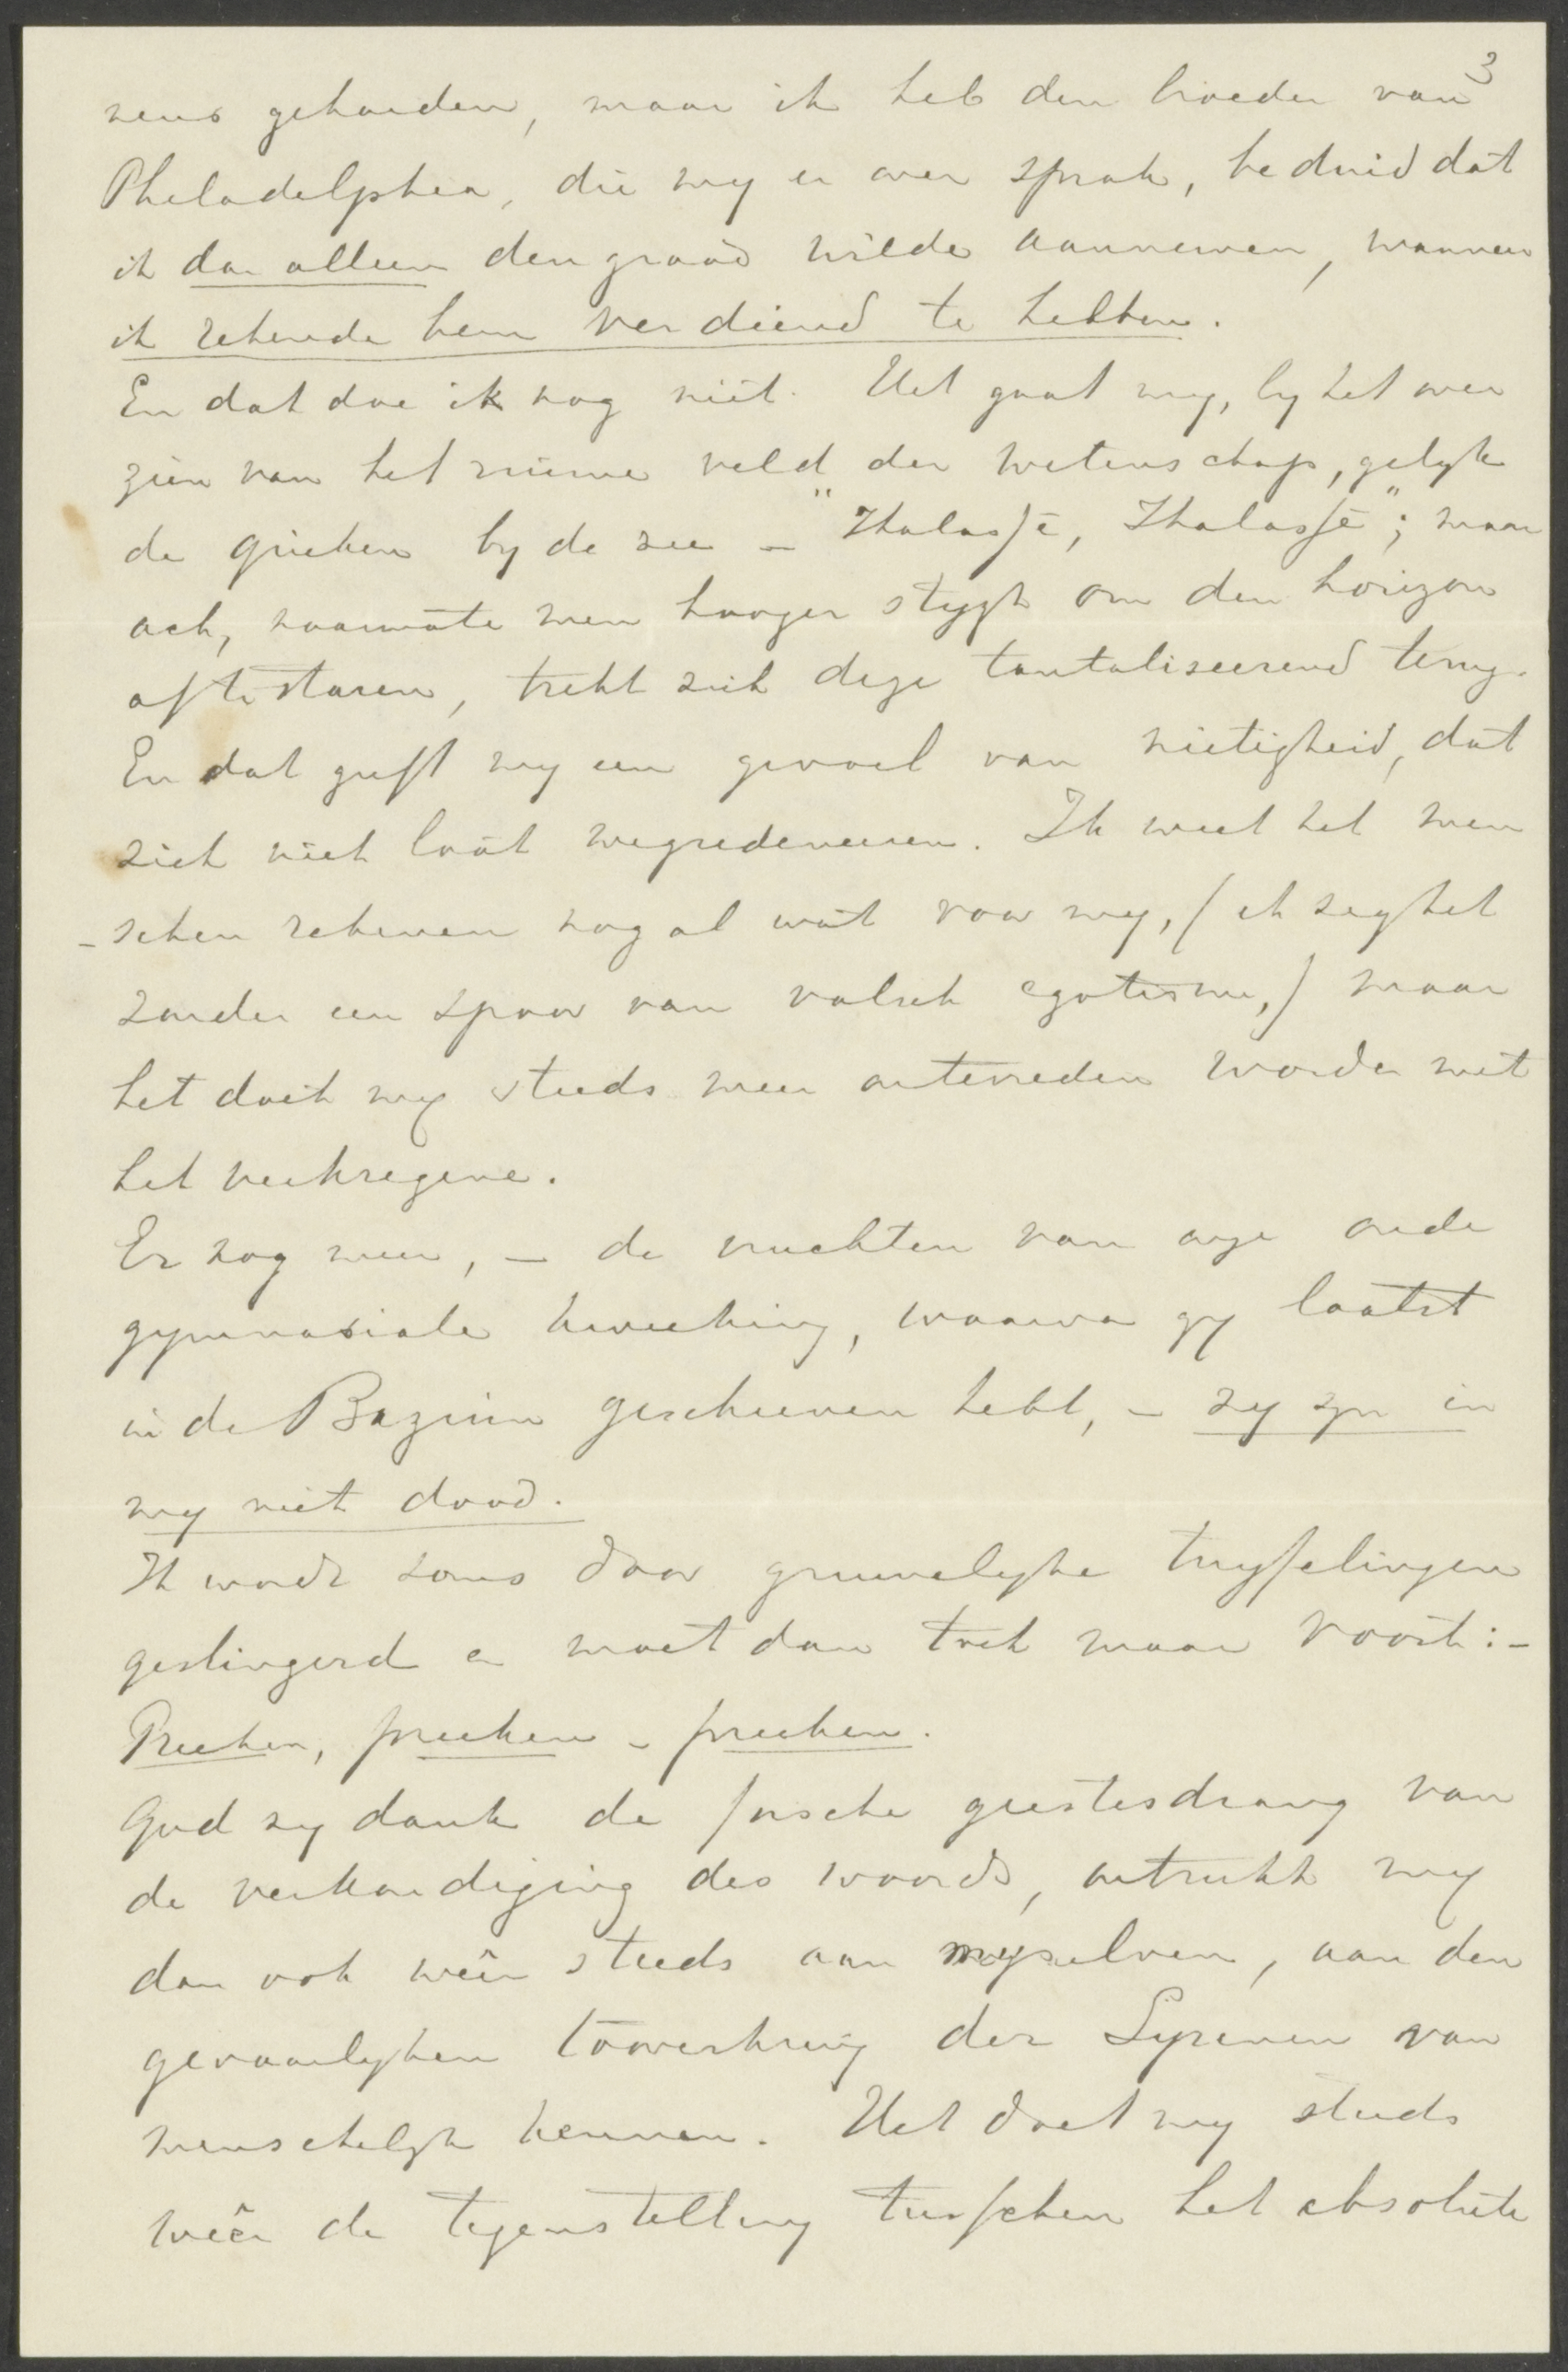 3
nens gehouden, maar ik heb den broeder van
Philadelphia, die my er over sprak, beduid dat
ik dan alleen den graad wilde aannemen, wanneer
ik rekende hem verdiend te hebben.
En dat doe ik nog niet. Het gaat my, by het over
zien van het ruime veld der wetenschap, gelyk
de Grieken by de zee – "Thalassē, Thalassē"; maar
ach, naarmate men hooger stygt om den horizon
af te staren, trekt zich deze tantaliseerend terug.
En dat geeft my een gevoel van nietigheid, dat
zich niet laat wegredeneeren. Ik weet het men
-schen rekenen nog al wat voor my, (ik zeg het
zonder een spoor van valsch egotisme,) maar
het doet my steeds meer ontevreden worden met
het verkregene.
En nog meer, – de vruchten van onze oude
gymnasiale kweeking, waarvan gy laatst
in de Bazuin geschreven hebt, – zy zyn in
my niet dood.
Ik wordt soms door gruwelyke twyfelingen
geslingerd en moet dan toch maar voort:–
Preeken, preeken – preeken.
God zy dank de forsche geestesdrang van
de verkondiging des woords, ontrukt my
dan ook wêer steeds aan myzelven, aan den
gevaarlyken tooverkring der Syrenen van
menschelyk kennen. Het doet my steeds
wêer de tegenstelling tusschen het absolute